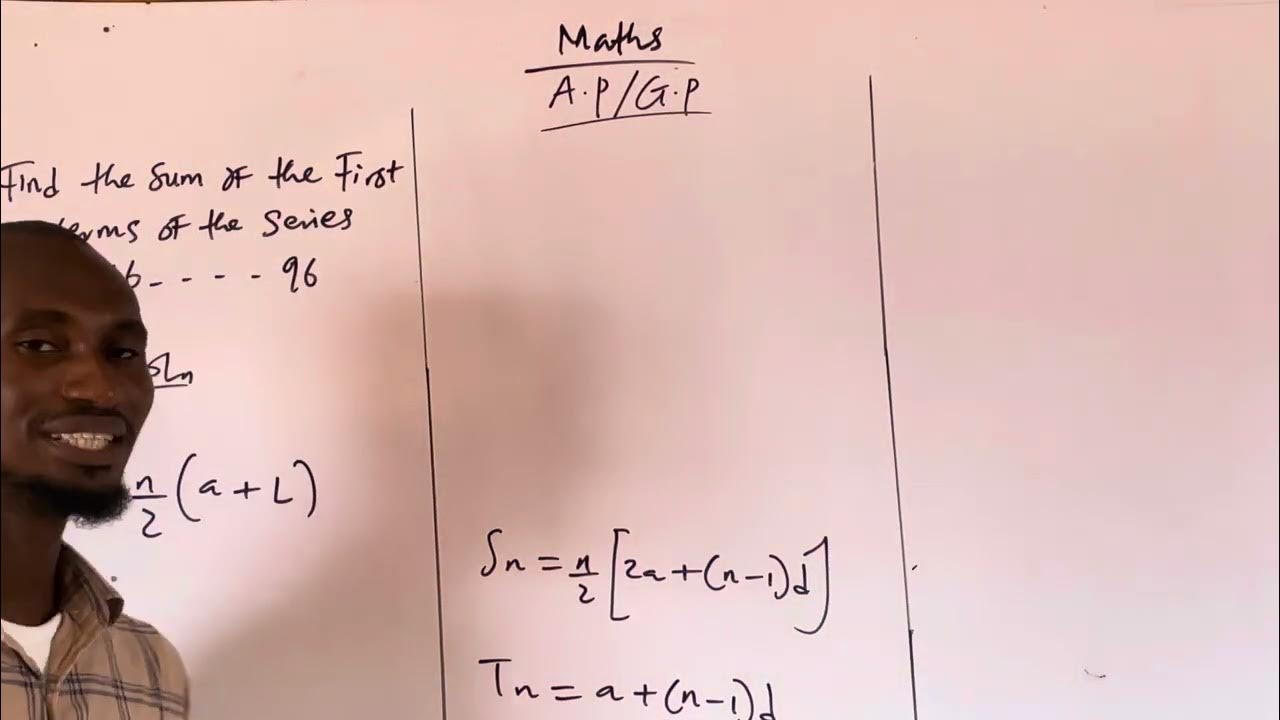 Maths
A.P/G.P
Find the Sum of the First
terms of the Series
6 - - - - 96
Soln
n/2 (a + L)
Sn = n/2 [2a + (n-1)d]
Tn = a + (n-1)d